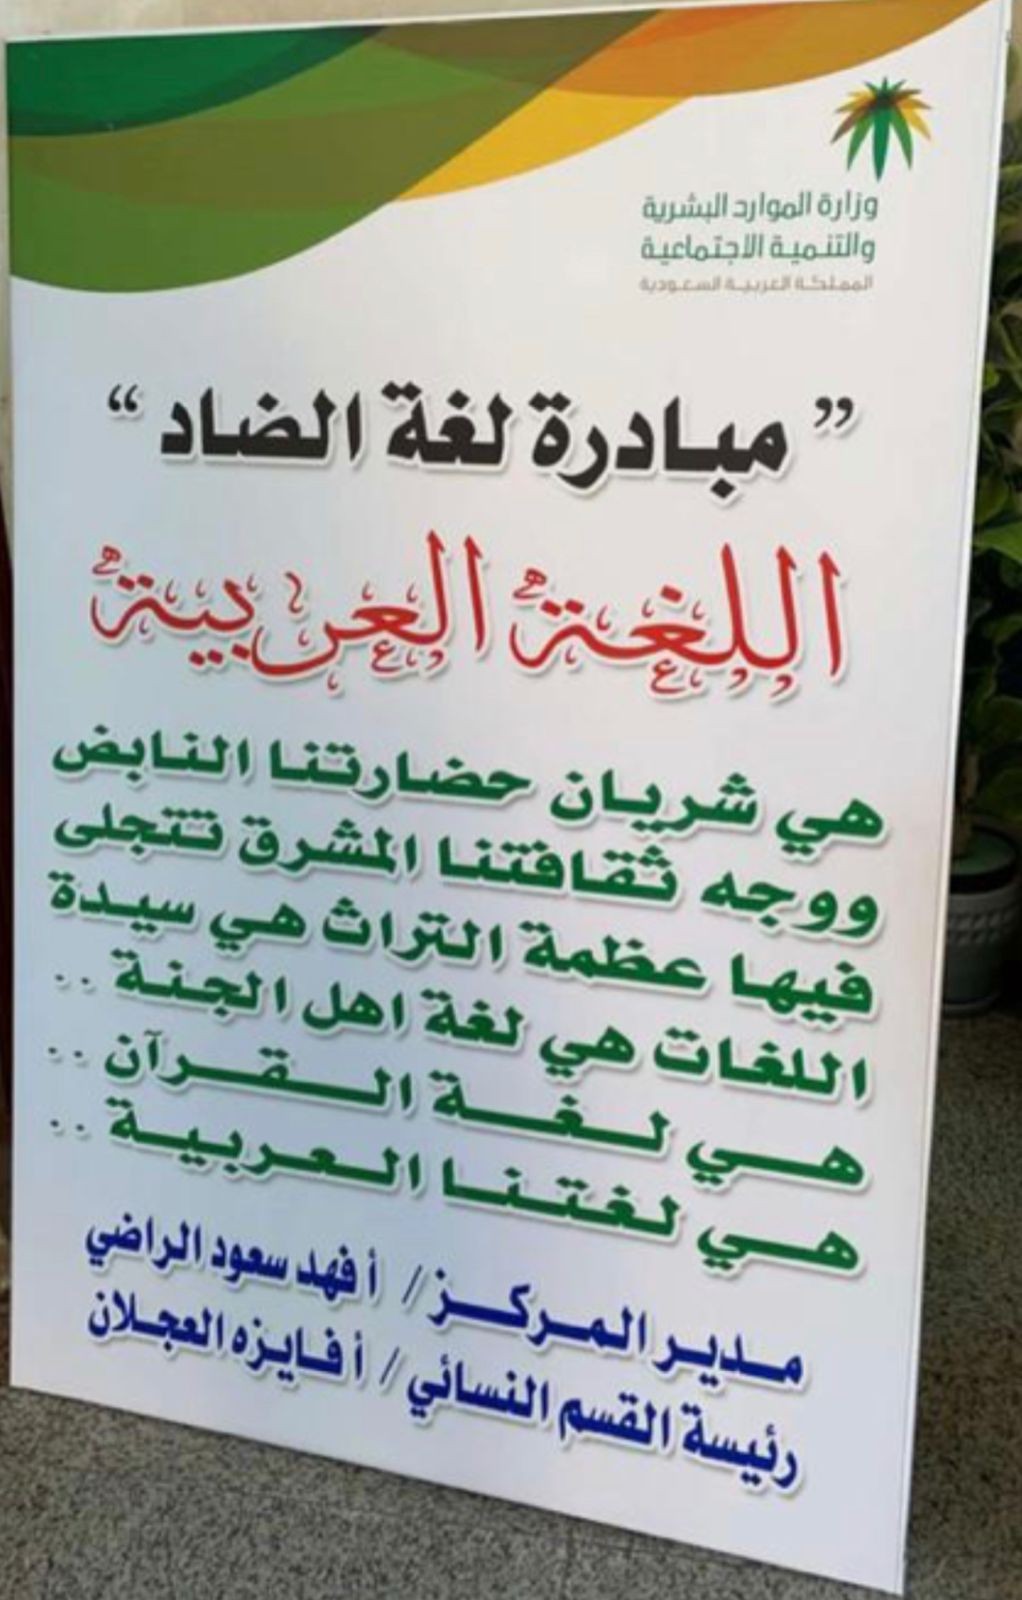 وزارة الموارد البشرية
والتنمية الاجتماعية
المملكة العربية السعودية
” مبادرة لغة الضاد “
اللغة العربية
هي شريان حضارتنا النابض
ووجه ثقافتنا المشرق تتجلى
فيها عظمة التراث هي سيدة
اللغات هي لغة اهل الجنة ..
هي لغة القرآن ..
هي لغتنا العربية ..
مدير المركز / أ فهد سعود الراضي
رئيسة القسم النسائي / أ فايزه العجلان